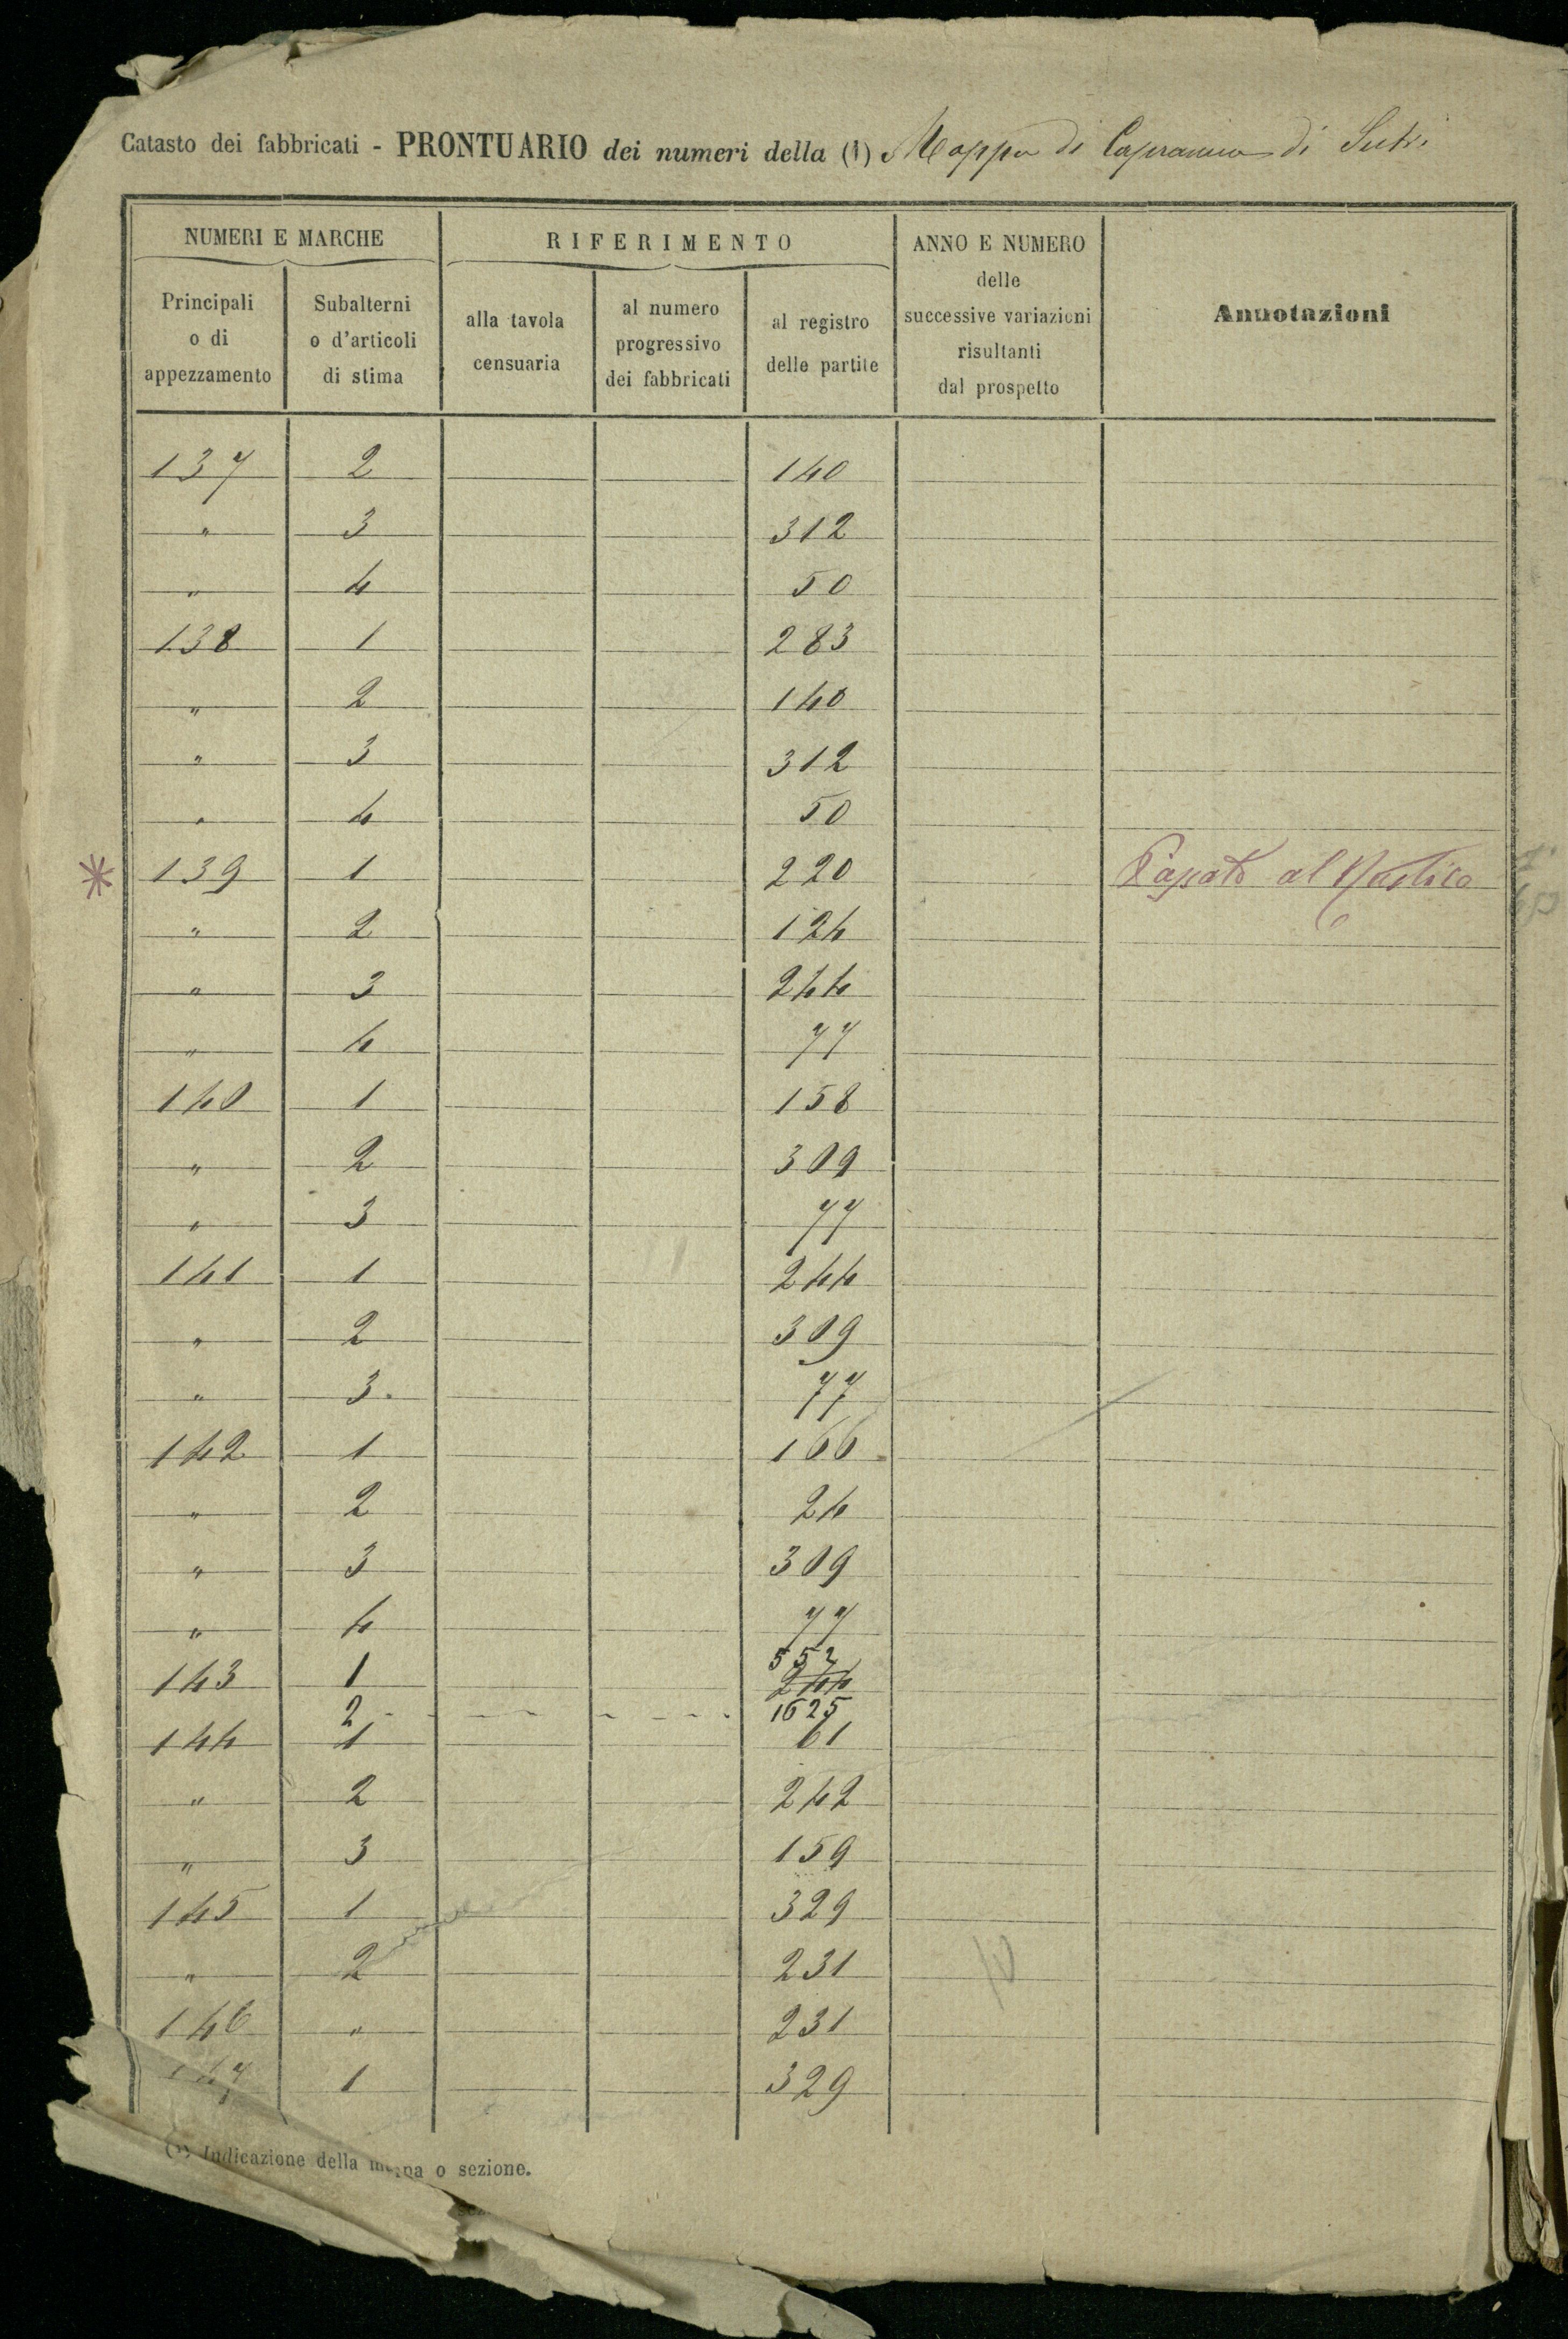 Catasto dei fabbricati - PRONTUARIO dei numeri della (1) Mappa di Capranica di Sutri
NUMERI E MARCHE
RIFERIMENTO
ANNO E NUMERO
delle
successive variazioni
risultanti
dal prospetto
Annotazioni
Principali
o di
appezzamento
Subalterni
o d'articoli
di stima
alla tavola
censuaria
al numero
progressivo
dei fabbricati
al registro
delle partite
137 2 140
" 3 312
" 4 50
138 1 283
" 2 140
" 3 312
" 4 50
* 139 1 220 Passato al Rustico
" 2 124
" 3 244
" 4 77
140 1 158
" 2 309
" 3 77
141 1 244
" 2 309
" 3 77
142 1 166
" 2 24
" 3 309
" 4 77
552
143 1 244
2 1625
144 1 61
" 2 242
" 3 159
145 1 329
" 2 231
146 " 231
147 1 329
(1) Indicazione della mappa o sezione.